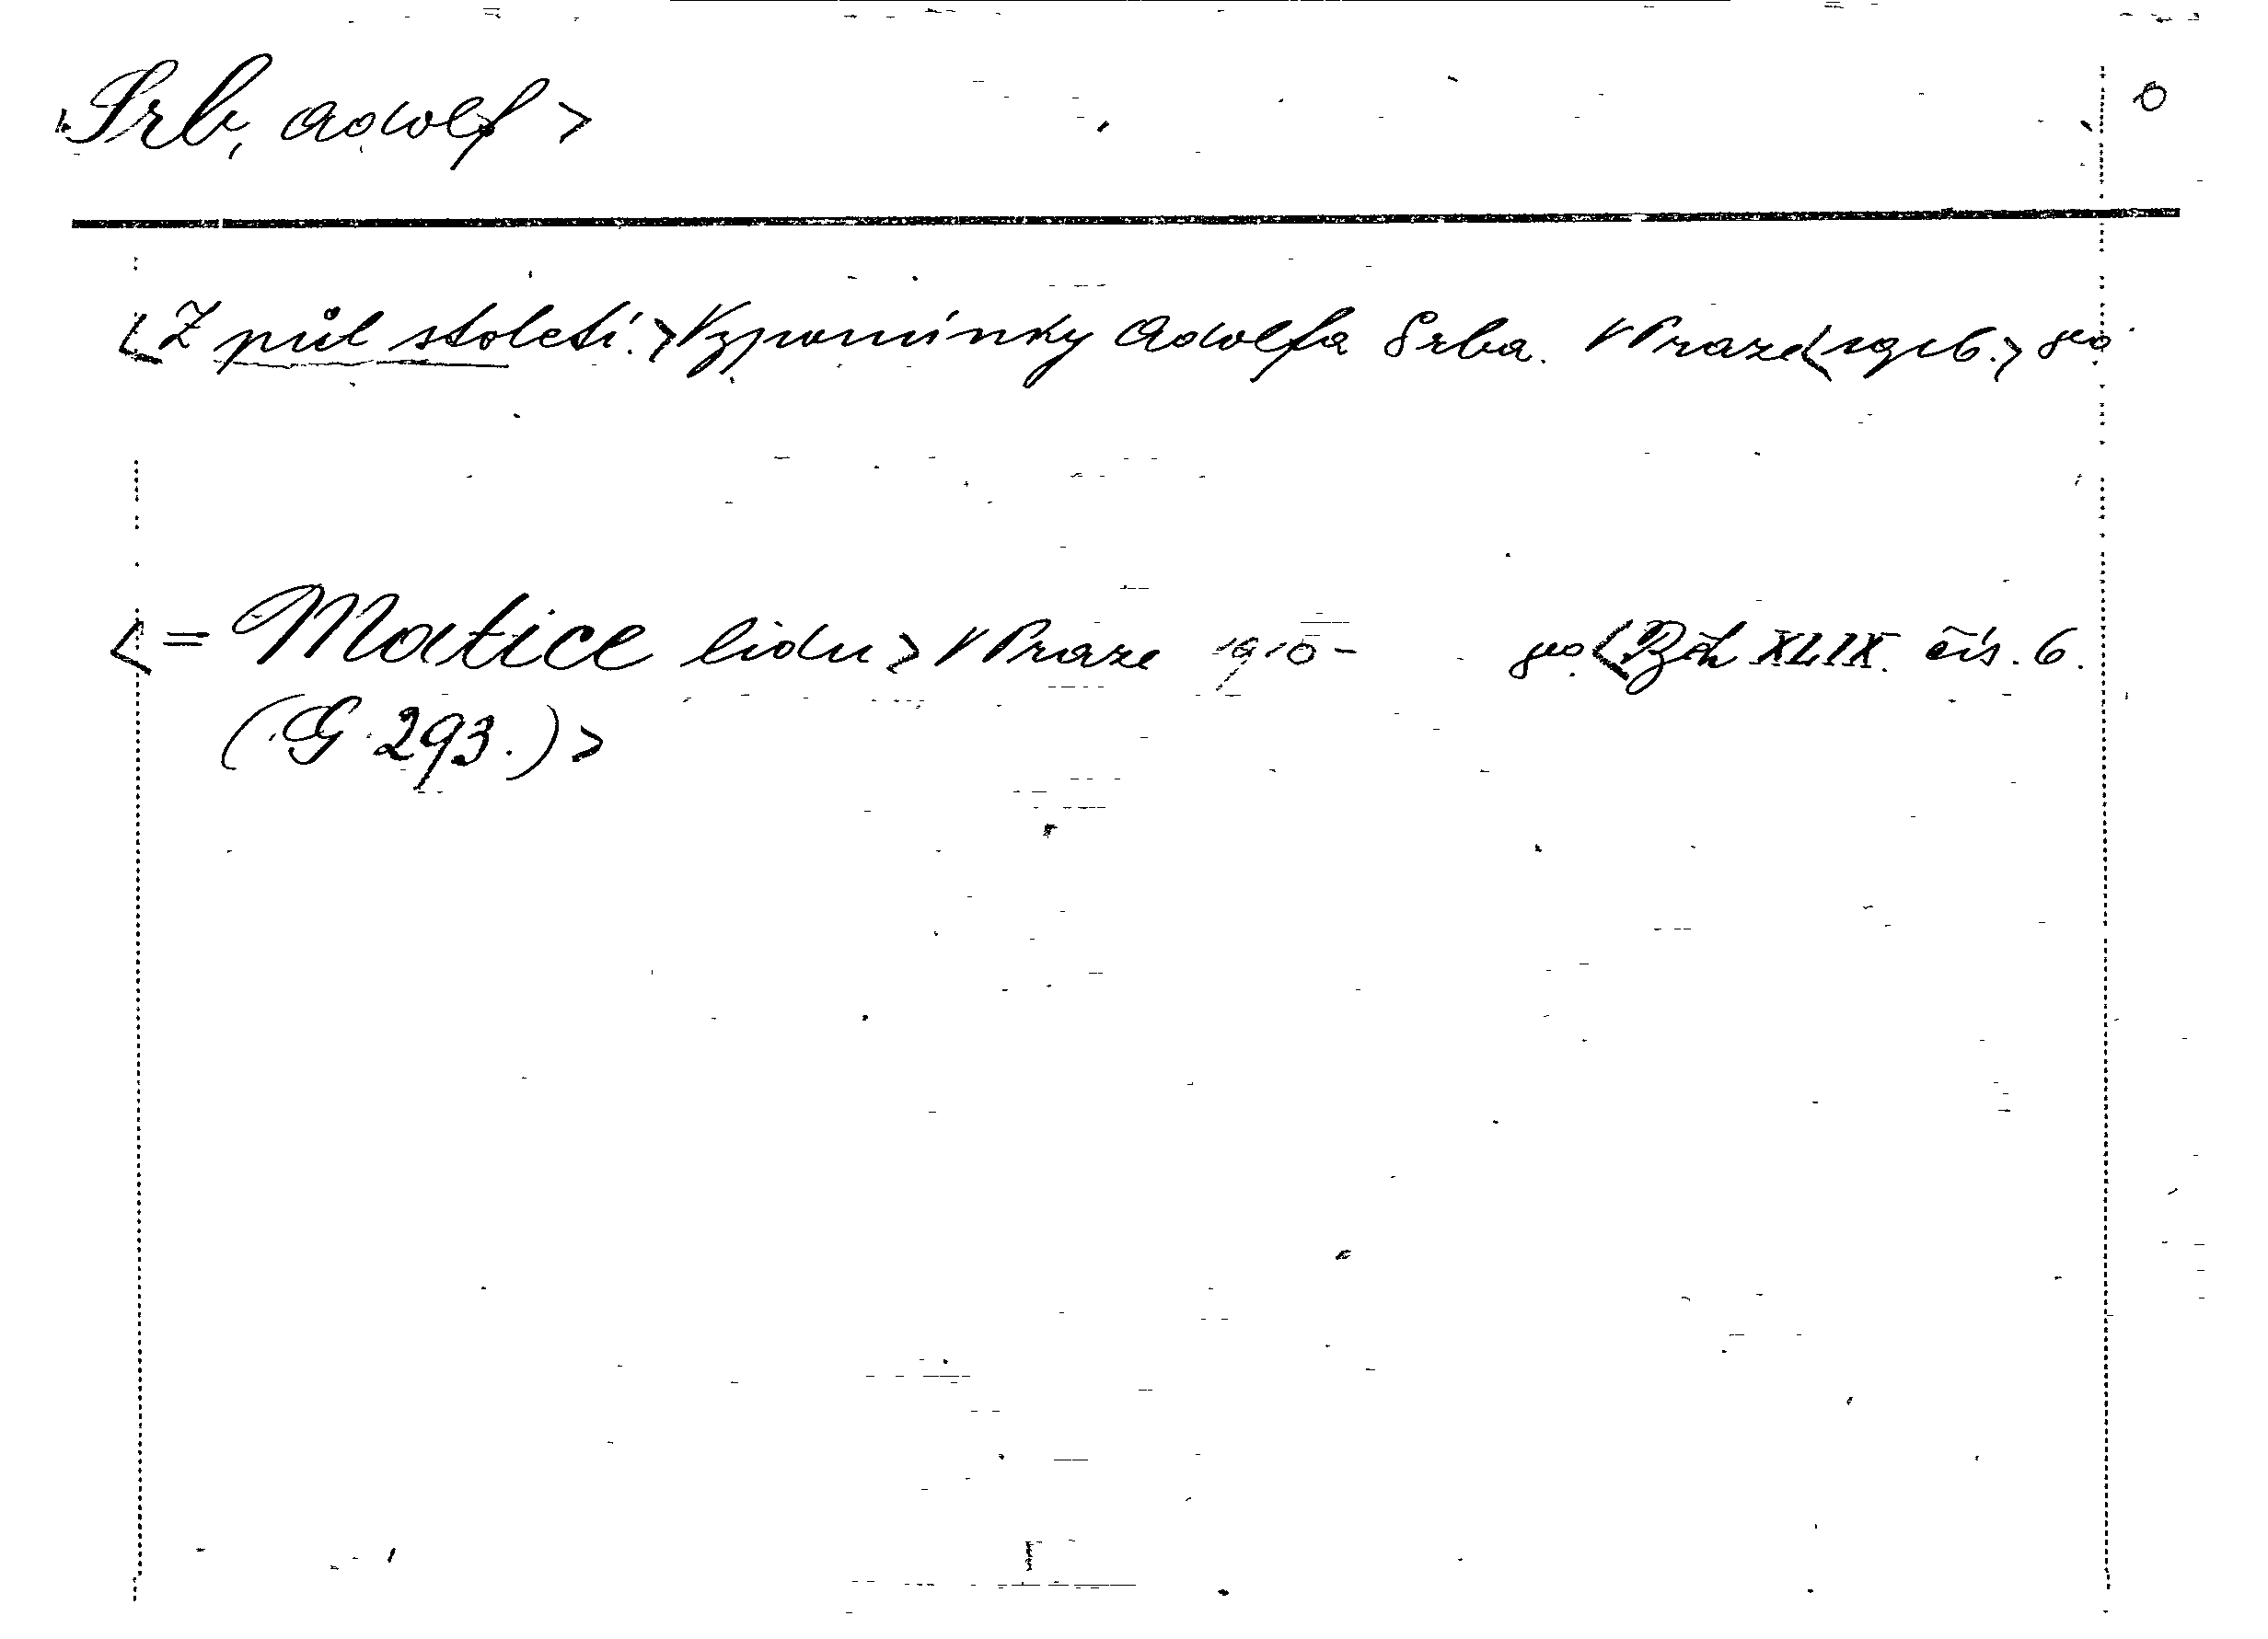 Srb, Adolf > o
<Z půl století.> Vzpomínky Adolfa Srba. V Praze <1916.> 8vo
<= Matice lidu > V Praze 1910- 8vo. < Roč. XLIX. čís. 6.
(G. 293.) >